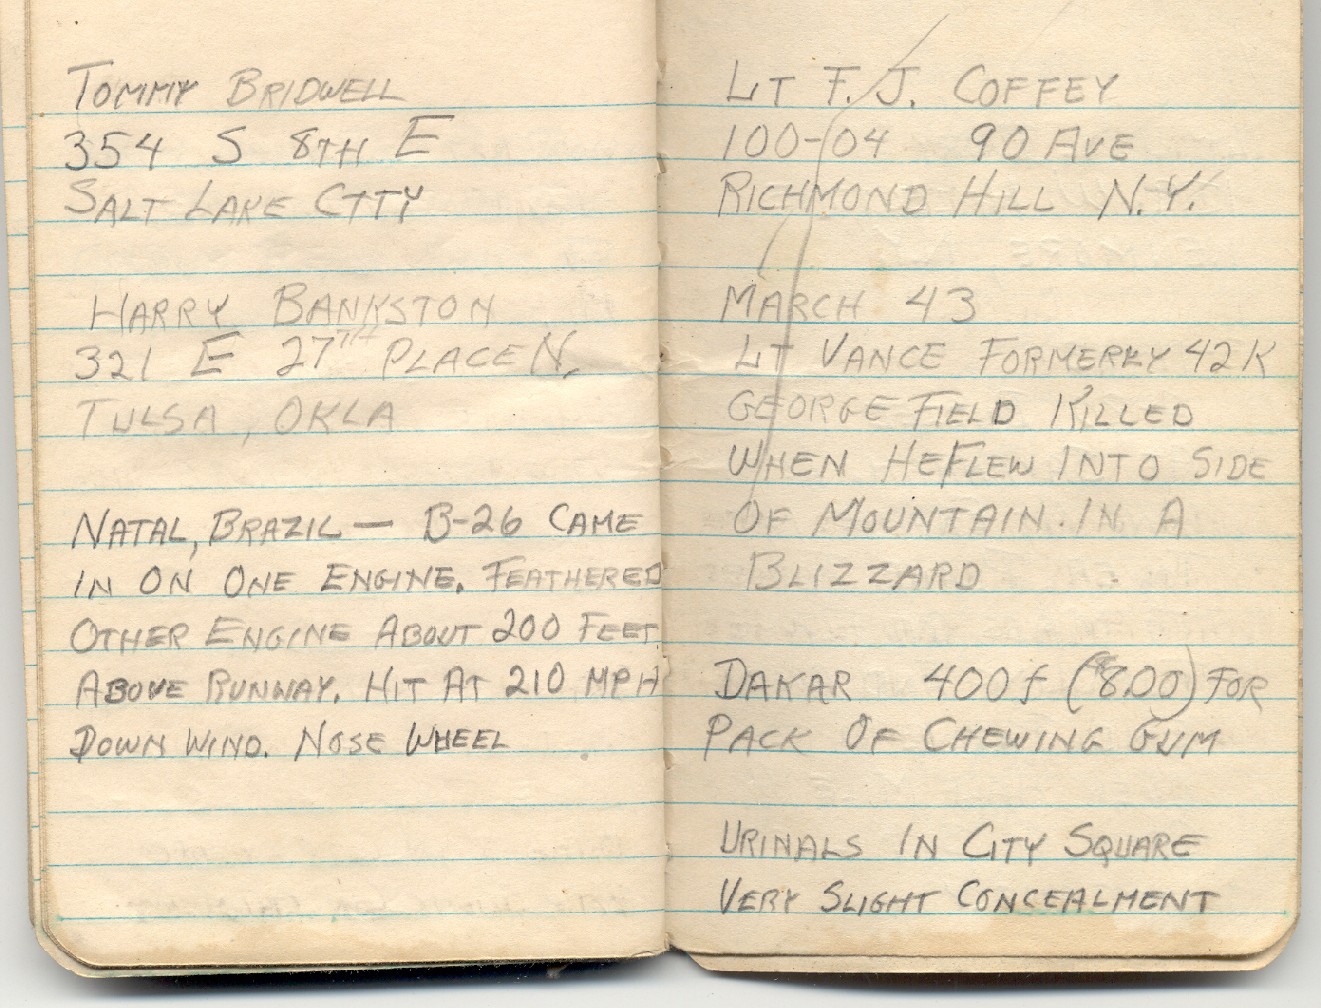 Tommy Bridwell
354 S 8th E
Salt Lake City
Harry Bankston
321 E 27TH Place N.
Tulsa, Okla
Natal, Brazil — B-26 came
in on one engine. Feathered
other engine about 200 feet
above runway. Hit at 210 MPH
down wind. Nose wheel
Lt F. J. Coffey
100-04 90 Ave
Richmond Hill N.Y.
March 43
Lt Vance formerly 42K
George Field killed
when he flew into side
of mountain in a
blizzard
Dakar 400f (8.00) for
pack of chewing gum
Urinals in City Square
Very slight concealment